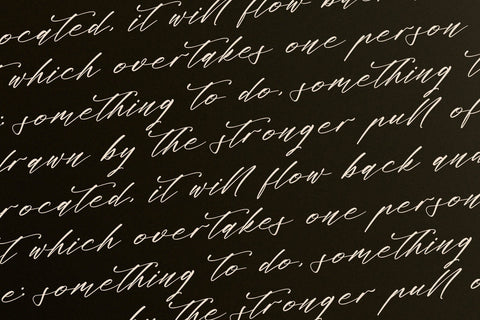 ocated, it will flow back
which overtakes one person
e; something to do, something t
drawn by the stronger pull of
rocated, it will flow back and
t which overtakes one person
e; something to do, something
by the stronger pull o